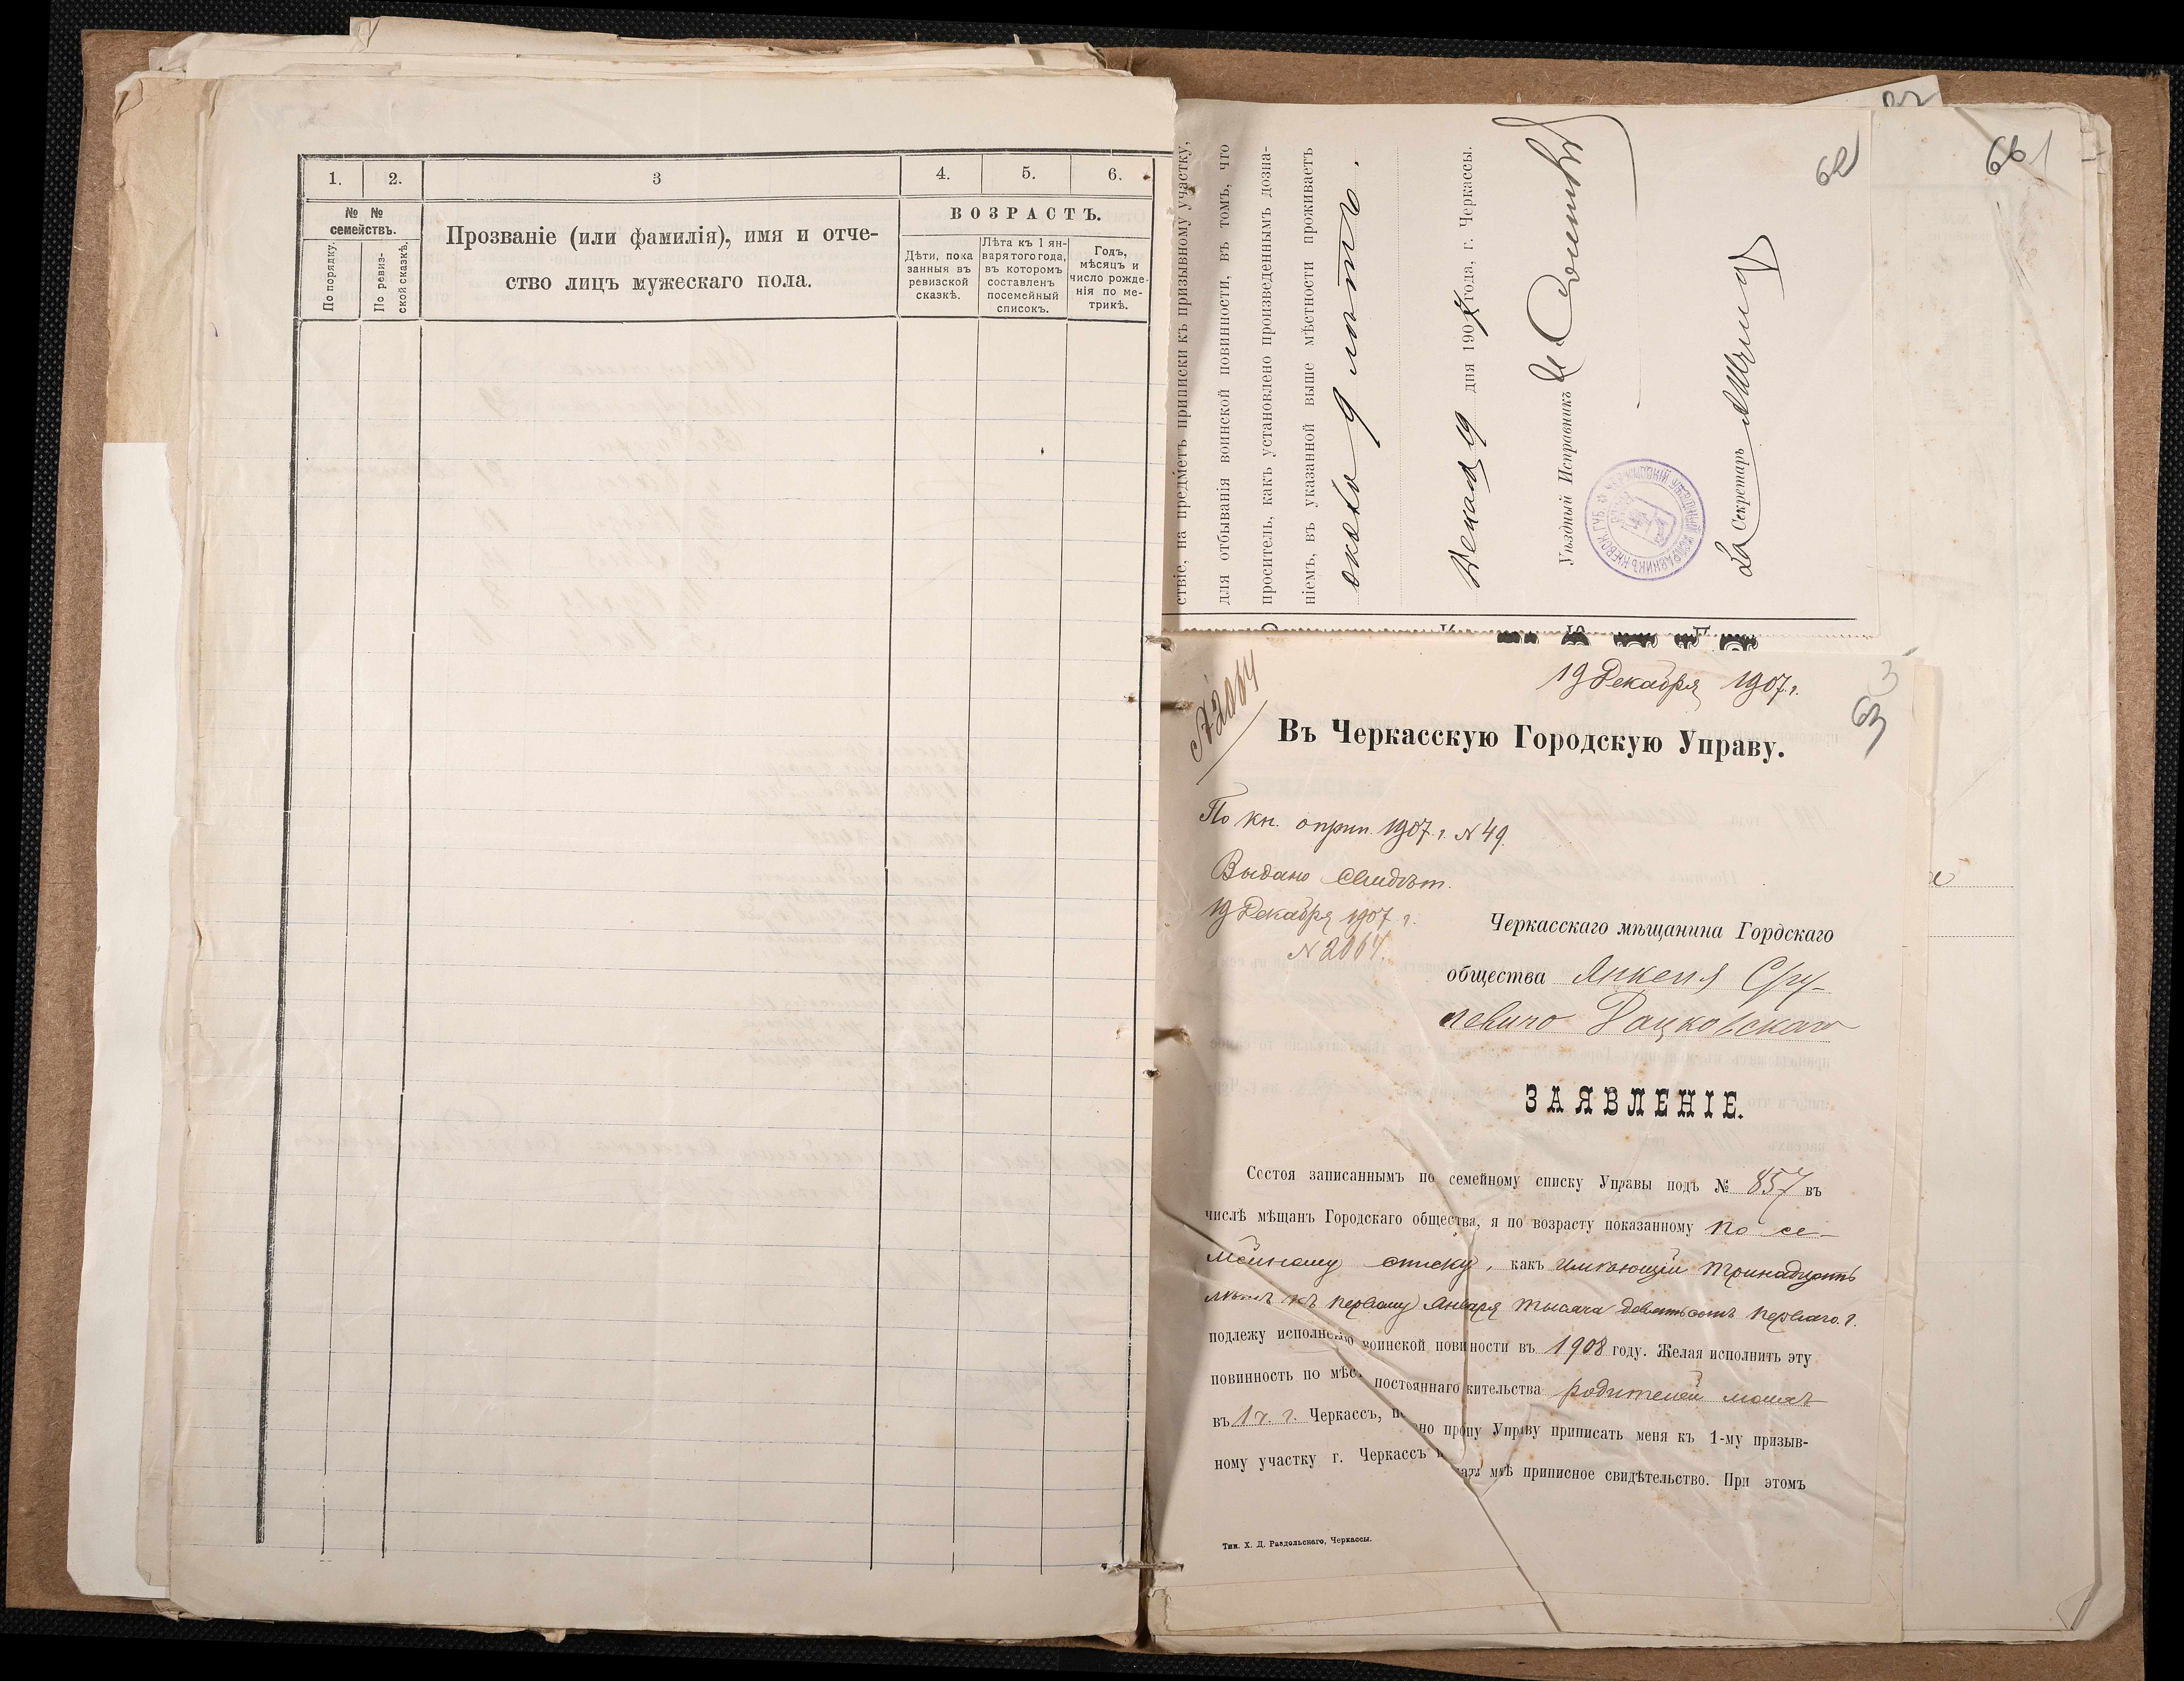 1. 2. 3 4. 5. 6.
№ № семействъ.
По порядку.
По ревизской сказкѣ.
Прозваніе (или фамилія), имя и отче-
ство лицъ мужескаго пола.
ВОЗРАСТЪ.
Дѣти, пока
занныя въ
ревизской
сказкѣ.
Лѣта къ 1 ян-
варя того года,
въ которомъ
составленъ
посемейный
списокъ.
Годъ,
мѣсяцъ и
число рожде-
нія по ме-
трикѣ.
ствіе, на предметъ приписки къ призывному участку,
для отбыванія воинской повинности, въ томъ, что
проситель, какъ установлено произведеннымъ дозна-
ніемъ, въ указанной выше мѣстности проживаетъ
около 9 лѣтъ.
Декабр 19 дня 1907 года, г. Черкассы.
Уѣздный Исправникъ
За Секретарь
62
661
19 Декабря 1907 г.
63
№ 2064
Въ Черкасскую Городскую Управу.
По кн. о прип. 1907 г. № 49.
Выдано свидѣт.
19 Декабря 1907 г.
№ 2064.
Черкасскаго мѣщанина Гордскаго
общества Янкеля Сру-
левича Рацковскаго
ЗАЯВЛЕНІЕ.
Состоя записаннымъ по семейному списку Управы подъ № 857 въ
числѣ мѣщанъ Городскаго общества, я по возрасту показанному по се-
мейному списку, какъ имѣющій тринадцать
лѣтъ къ первому Января тысяча девятьсотъ перваго г.
подлежу исполненію воинской повиности въ 1908 году. Желая исполнить эту
повинность по мѣс. постояннаго жительства родителей моихъ
въ 1 ч. г. Черкассъ, по но прошу Управу приписать меня къ 1-му призыв-
ному участку г. Черкассъ и дать мнѣ приписное свидѣтельство. При этомъ
Тип. Х. Д. Раздольскаго, Черкассы.